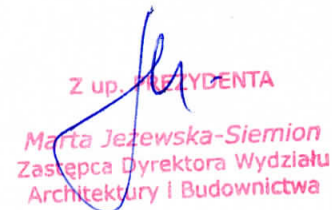 Z up. PREZYDENTA
Marta Jeżewska-Siemion
Zastępca Dyrektora Wydziału
Architektury i Budownictwa